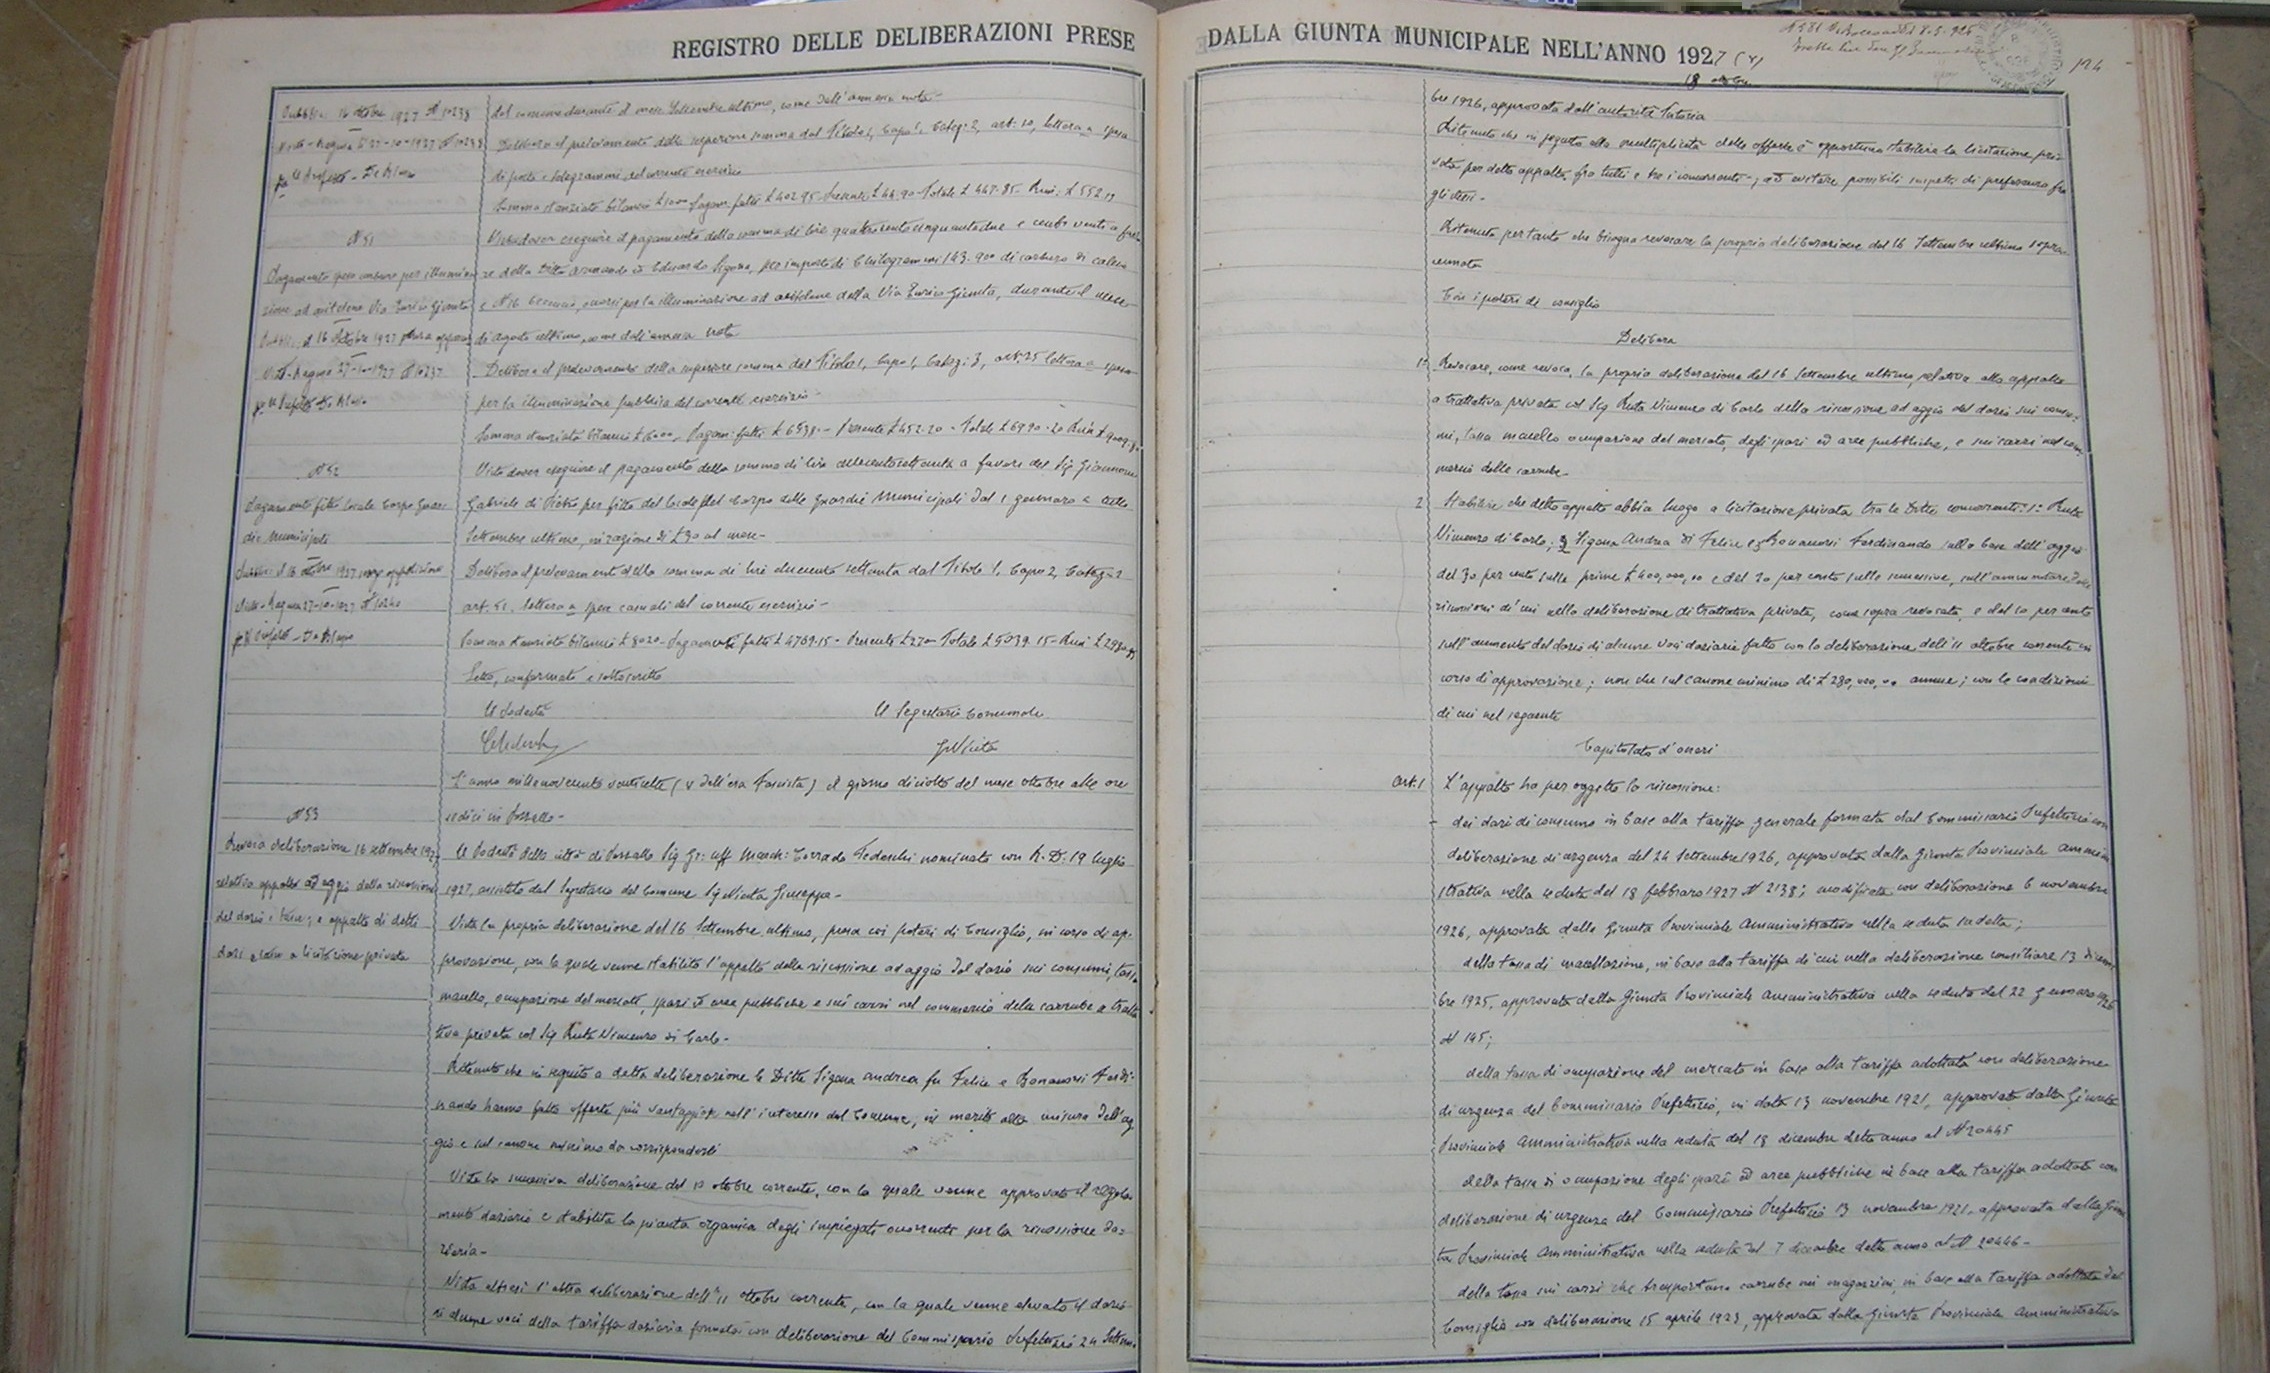 REGISTRO DELLE DELIBERAZIONI PRESE
Pubblic. 16 ottobre 1927 N 10238
Visto - Ragusa li 27-10-1927 N 10238
p. Il Prefetto - De Blasio
N 51
Pagamento spesa carburo per illumina
zione ad acetilene Via Enrico Giunta
Pubblic. il 16 ottobre 1927 senza opposiz.
Visto - Ragusa 27-10-1927 N 10237
p. Il Prefetto De Blasio
N 52
Pagamento fitto locale Corpo Guar-
die Municipali
Pubblic. il 16 ottobre 1927 senza opposizione
Visto - Ragusa 27-10-1927 N 10240
p. Il Prefetto - De Blasio
N 53
Revoca deliberazione 16 settembre 1927
relativa appalto ad aggio della riscossione
del dazio e tasse; e appalto di detti
dazi e tasse a licitazione privata
del comune durante il mese Settembre ultimo, come dall'annessa nota-
Delibera il prelevamento della superiore somma dal Titolo 1, Capo 1, Categ: 2, art: 20, lettera a spesa
di posta e telegrammi, del corrente esercizio
Somma stanziata bilancio £ 1000 Pagam. fatti £ 402.95 - Presente £ 44.90 - Totale £ 447.85 - Rim: £ 552.15
Visto dover eseguire il pagamento della somma di lire quattrocentocinquantadue e cent. venti a favo
re della Ditta Armando ed Eduardo Signora, per importo di Chilogrammi 143.900 di carburo di calcio
e N 16 beccucci, occorsi per la illuminazione ad acetilene della Via Enrico Giunta, durante il mese
di agosto ultimo, come dall'annessa nota
Delibera il prelevamento della superiore somma dal Titolo 1, Capo 1, Categ: 3, art: 25 lettera a spesa
per la illuminazione pubblica del corrente esercizio-
Somma stanziata bilancio £ 6000 - Pagam: fatti £ 6538 - Presente £ 452.20 - Totale £ 6990.20 Rim £
Visto dover eseguire il pagamento della somma di lire duecentosettanta a favore del Sig Giannone
Gabriele di Pietro per fitto del locale del Corpo delle Guardie Municipali dal 1 gennaro a tutto
Settembre ultimo, in ragione di £ 30 al mese-
Delibera il prelevamento della somma di lire duecento settanta dal Titolo 1, Capo 2, Categ: 2
art. 51, lettera a spese casuali del corrente esercizio-
Somma stanziata bilancio £ 8020 - Pagamenti fatti £ 4769.15 - Presente £ 270 - Totale £ 5039.15 - Rim £ 2980.85
Letto, confermato e sottoscritto
Il Podestà Il Segretario Comunale
Tedeschi GNicita
L'anno millenovecento ventisette (V dell'era Fascista) il giorno diciotto del mese ottobre alle ore
sedici in Pozzallo-
Il Podestà della città di Pozzallo Sig Gr: uff March: Corrado Tedeschi nominato con R. D. 19 luglio
1927, assistito dal Segretario del Comune Sig Nicita Giuseppe-
Vista la propria deliberazione del 16 Settembre ultimo, presa coi poteri di Consiglio, in corso di ap-
provazione, con la quale venne stabilito l'appalto della riscossione ad aggio dal dazio sui consumi, tassa
macello, occupazione del mercato, spazi ed aree pubbliche e sui carri nel commercio delle carrube a tratta
tiva privata col Sig Ruta Vincenzo di Carlo-
Ritenuto che in seguito a detta deliberazione le Ditte Sigona Andrea fu Felice e Bonanori Ferdi-
nando hanno fatto offerte più vantaggiose nell'interesse del Comune, in merito alla misura dell'ag
gio e sul canone minimo da corrispondersi
Vista la successiva deliberazione del 10 ottobre corrente, con la quale venne approvato il regola
mento daziario e stabilita la pianta organica degli impiegati occorrenti per la riscossione da-
ziaria-
Vista altresì l'altra deliberazione dell'11 ottobre corrente, con la quale venne elevato il dazio
di alcune voci della tariffa daziaria formata con deliberazione del Commissario Prefettizio 24 Settem.
DALLA GIUNTA MUNICIPALE NELL'ANNO 1927 (V)
18 ottobre
124
bre 1926, approvata dall'autorità Tutoria
Ritenuto che in seguito alla molteplicità delle offerte è opportuno stabilire la licitazione pri-
vata per detto appalto, fra tutti e tre i concorrenti, ad evitare possibili sospetti di preferenza fra
gli stessi-
Ritenuto pertanto che bisogna revocare la propria deliberazione del 16 Settembre ultimo sopra-
cennata
Coi i poteri di consiglio
Delibera
1° Revocare, come revoca, la propria deliberazione del 16 Settembre ultimo, relativa allo appalto
a trattativa privata col Sig Ruta Vincenzo di Carlo della riscossione ad aggio del dazio sui consu-
mi, tassa macello occupazione del mercato, degli spazi ed aree pubbliche, e sui carri nel com
mercio delle carrube-
2 Stabilire che detto appalto abbia luogo a licitazione privata tra le Ditte concorrenti: 1° Ruta
Vincenzo di Carlo; 2 Sigona Andrea di Felice e 3 Bonanori Ferdinando sulla base dell'aggio
del 30 per cento sulle prime £ 400,000,00 e del 20 per cento sulle successive, sull'ammontare delle
riscossioni di cui nella deliberazione di trattativa privata, come sopra revocata, e del 10 per cento
sull'aumento del dazio di alcune voci daziarie fatto con la deliberazione dell'11 ottobre corrente in
corso di approvazione; non che sul canone minimo di £ 280,000,00 annue; con le condizioni
di cui nel seguente
Capitolato d'oneri
Art. 1 L'appalto ha per oggetto la riscossione:
- dei dazi di consumo in base alla tariffa generale formata dal Commissario Prefettizio con
deliberazione di urgenza del 24 Settembre 1926, approvata dalla Giunta Provinciale Ammini
strativa nella seduta del 18 febbraro 1927 N 2138; modificata con deliberazione 6 novembre
1926, approvata dalla Giunta Provinciale Amministrativa nella seduta sudetta;
della tassa di macellazione, in base alla tariffa di cui nella deliberazione consiliare 13 dicem
bre 1925, approvata dalla Giunta Provinciale Amministrativa nella seduta del 22 gennaro 1926
N 145;
della tassa di occupazione del mercato in base alla tariffa adottata con deliberazione
di urgenza del Commissario Prefettizio, in data 13 novembre 1921, approvata dalla Giunta
Provinciale Amministrativa nella seduta del 18 dicembre detto anno al N 20445
della tassa di occupazione degli spazi ed aree pubbliche in base alla tariffa adottata con
deliberazione di urgenza del Commissario Prefettizio 13 novembre 1921, approvata dalla Giun
ta Provinciale Amministrativa nella seduta del 7 dicembre detto anno al N 20446-
della tassa sui carri che trasportano carrube nei magazzini, in base alla tariffa adottata dal
Consiglio con deliberazione 15 aprile 1923, approvata dalla Giunta Provinciale Amministrativa